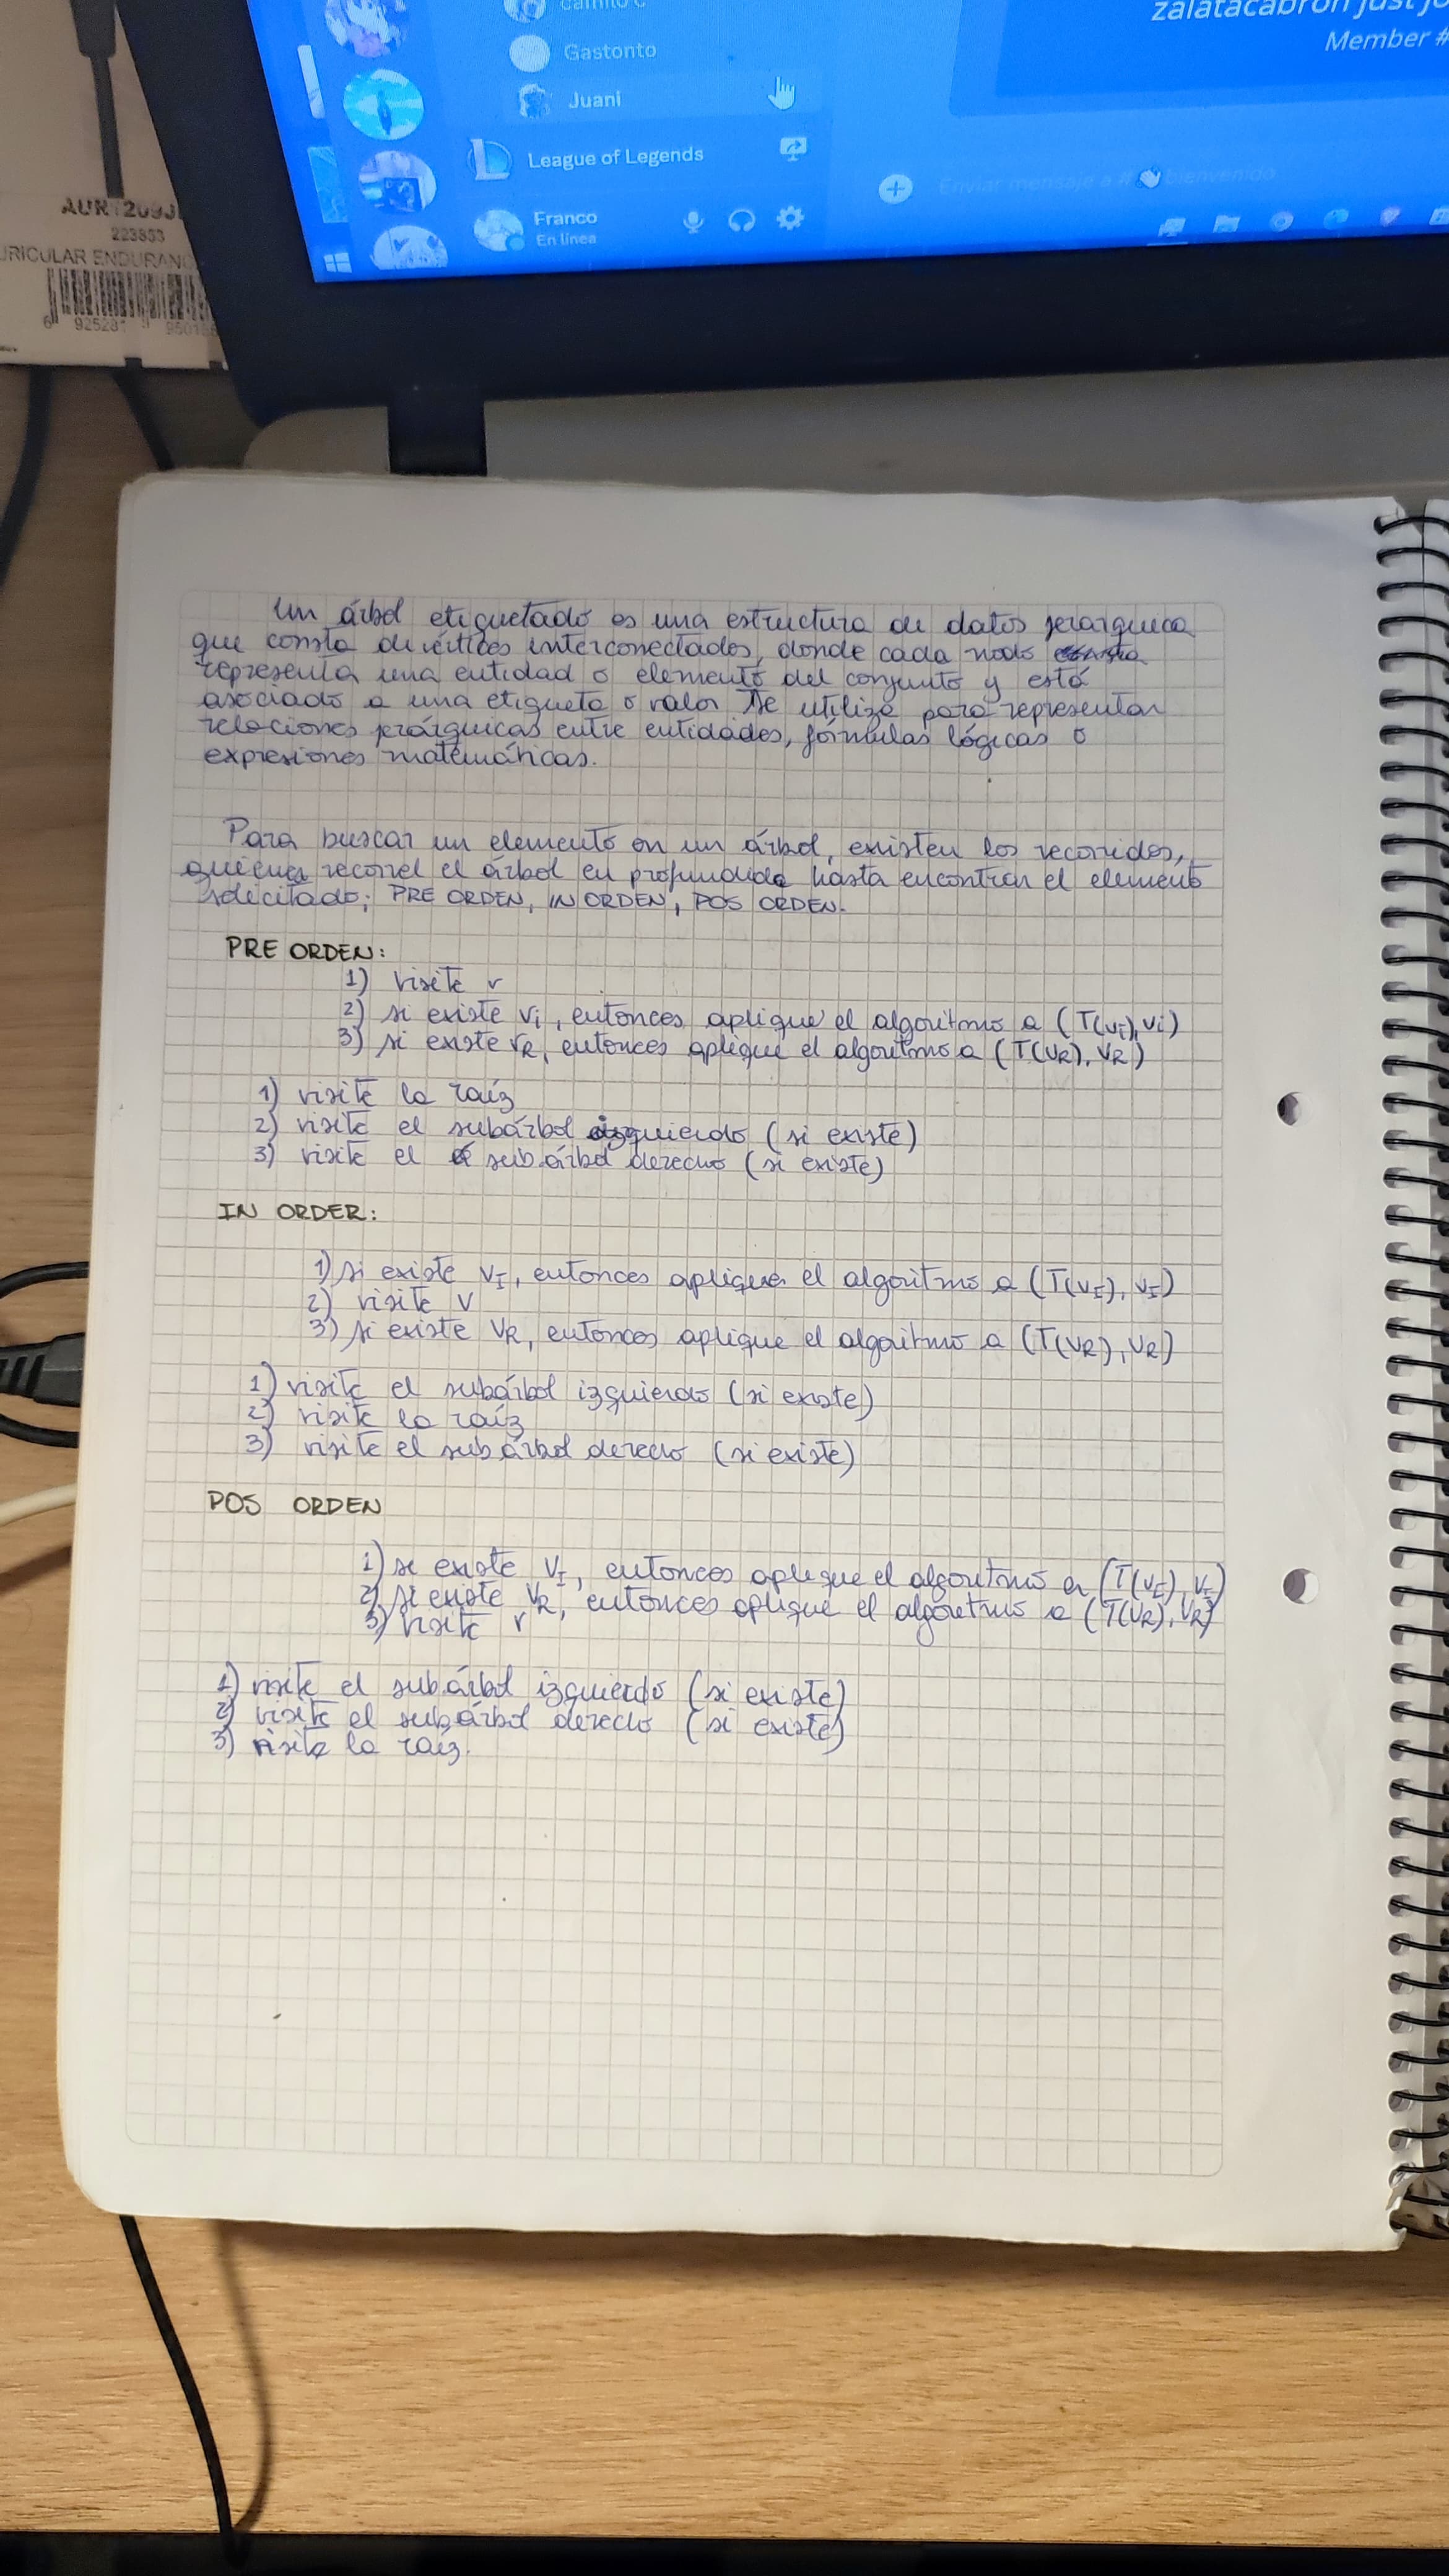 Camilo C
Gastonto
Juani
League of Legends
Franco
En línea
zalatacabron just jo
Member #
Enviar mensaje a # 👋 bienvenido
223853
URICULAR ENDURANC
Un árbol etiquetado es una estructura de datos jerarquica
que consta de vértices interconectados, donde cada nodo
representa una entidad o elemento del conjunto y está
asociado a una etiqueta o valor. Se utiliza para representar
relaciones jerárquicas entre entidades, fórmulas lógicas o
expresiones matemáticas.
Para buscar un elemento en un árbol, existen los recorridos,
recorrel el árbol en profundida hasta encontrar el elemento
solicitado; PRE ORDEN, IN ORDEN, POS ORDEN.
PRE ORDEN:
1) visite v
2) si existe vi, entonces aplique el algoritmo a (T(vi), vi)
3) si existe vR, entonces aplique el algoritmo a (T(vR), vR)
1) visite la raíz
2) visite el subárbol izquierdo (si existe)
3) visite el subárbol derecho (si existe)
IN ORDER:
1) si existe vI, entonces aplique el algoritmo a (T(vI), vI)
2) visite v
3) si existe vR, entonces aplique el algoritmo a (T(vR), vR)
1) visite el subárbol izquierdo (si existe)
2) visite la raíz
3) visite el subárbol derecho (si existe)
POS ORDEN
1) si existe vI, entonces aplique el algoritmo a (T(vI), vI)
2) si existe vR, entonces aplique el algoritmo a (T(vR), vR)
3) visite v
1) visite el subárbol izquierdo (si existe)
2) visite el subárbol derecho (si existe)
3) visite la raíz.